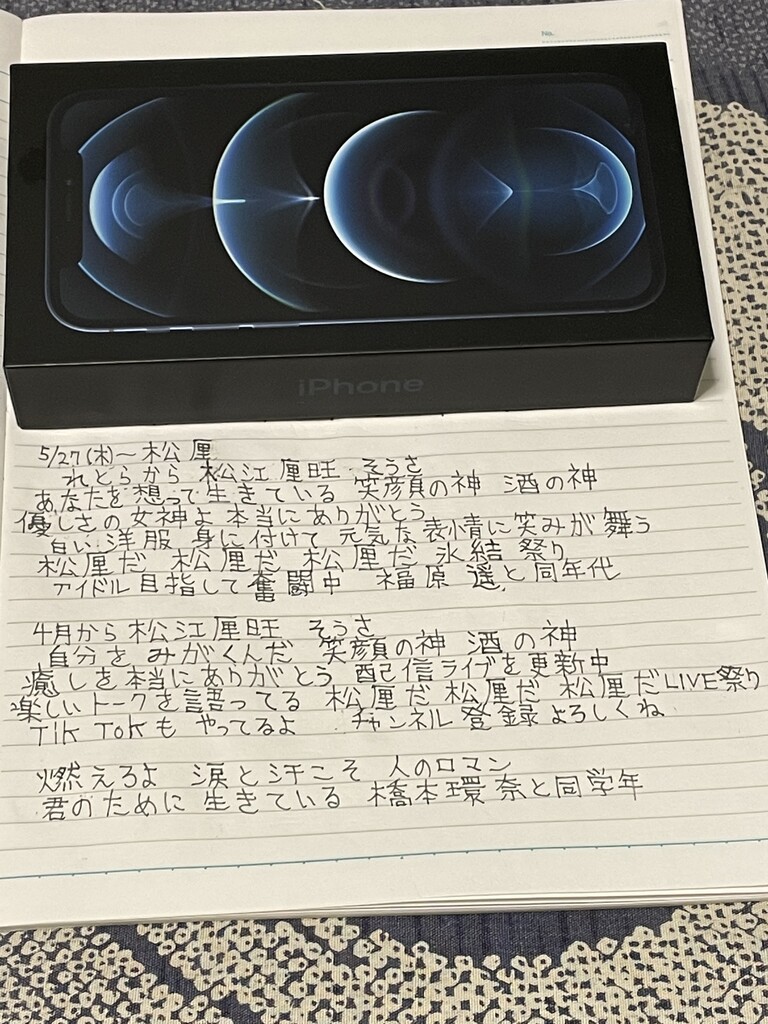 No.
iPhone
5/27(木)〜松厘
れとらから 松江厘旺 そうさ
あなたを想って生きている 笑顔の神 酒の神
優しさの女神よ本当にありがとう
白い洋服 身に付けて 元気な表情に笑みが舞う
松厘だ 松厘だ 松厘だ 氷結祭り
アイドル目指して奮闘中 福原遥と同年代
4月から松江厘旺 そうさ
自分をみがくんだ 笑顔の神 酒の神
癒しを本当にありがとう 配信ライブを更新中
楽しいトークを語ってる 松厘だ 松厘だ 松厘だLIVE祭り
TIK TOKも やってるよ チャンネル登録よろしくね
燃えろよ 涙と汗こそ 人のロマン
君のために生きている 橋本環奈と同学年